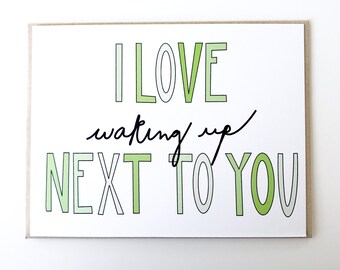 I LOVE
waking up
NEXT TO YOU